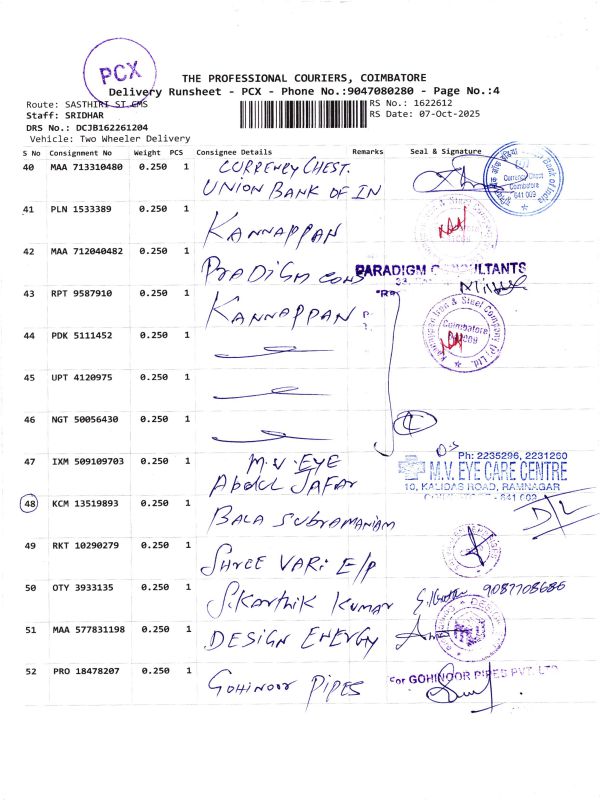 PCX
THE PROFESSIONAL COURIERS, COIMBATORE
Delivery Runsheet - PCX - Phone No.:9047080280 - Page No.:4
Route: SASTHIRI ST CMS
RS No.: 1622612
Staff: SRIDHAR
RS Date: 07-Oct-2025
DRS No.: DCJB162261204
Vehicle: Two Wheeler Delivery
S No Consignment No Weight PCS Consignee Details Remarks Seal & Signature
40 MAA 713310480 0.250 1 CURRENCY CHEST.
UNION BANK OF IN
Currency Chest
Coimbatore
641 009
41 PLN 1533389 0.250 1 KANNAPPAN
42 MAA 712040482 0.250 1 PRADIGM CONS
PARADIGM CONSULTANTS
43 RPT 9587910 0.250 1 KANNAPPAN
Kannappan Iron & Steel Company (P) Ltd.
Coimbatore
44 PDK 5111452 0.250 1
45 UPT 4120975 0.250 1
46 NGT 50056430 0.250 1
47 IXM 509109703 0.250 1 M.V. EYE
Ph: 2235296, 2231260
M.V. EYE CARE CENTRE
10, KALIDAS ROAD, RAMNAGAR
641 009
Abdul JAFAR
48 KCM 13519893 0.250 1 BALA SUBRAMANIAM
D/L
49 RKT 10290279 0.250 1 SHREE VARI E/P
50 OTY 3933135 0.250 1 S.Karthik Kumar 9087708686
51 MAA 577831198 0.250 1 DESIGN ENERGY
52 PRO 18478207 0.250 1 GOHINOOR PIPES
For GOHINOOR PIPES PVT. LTD